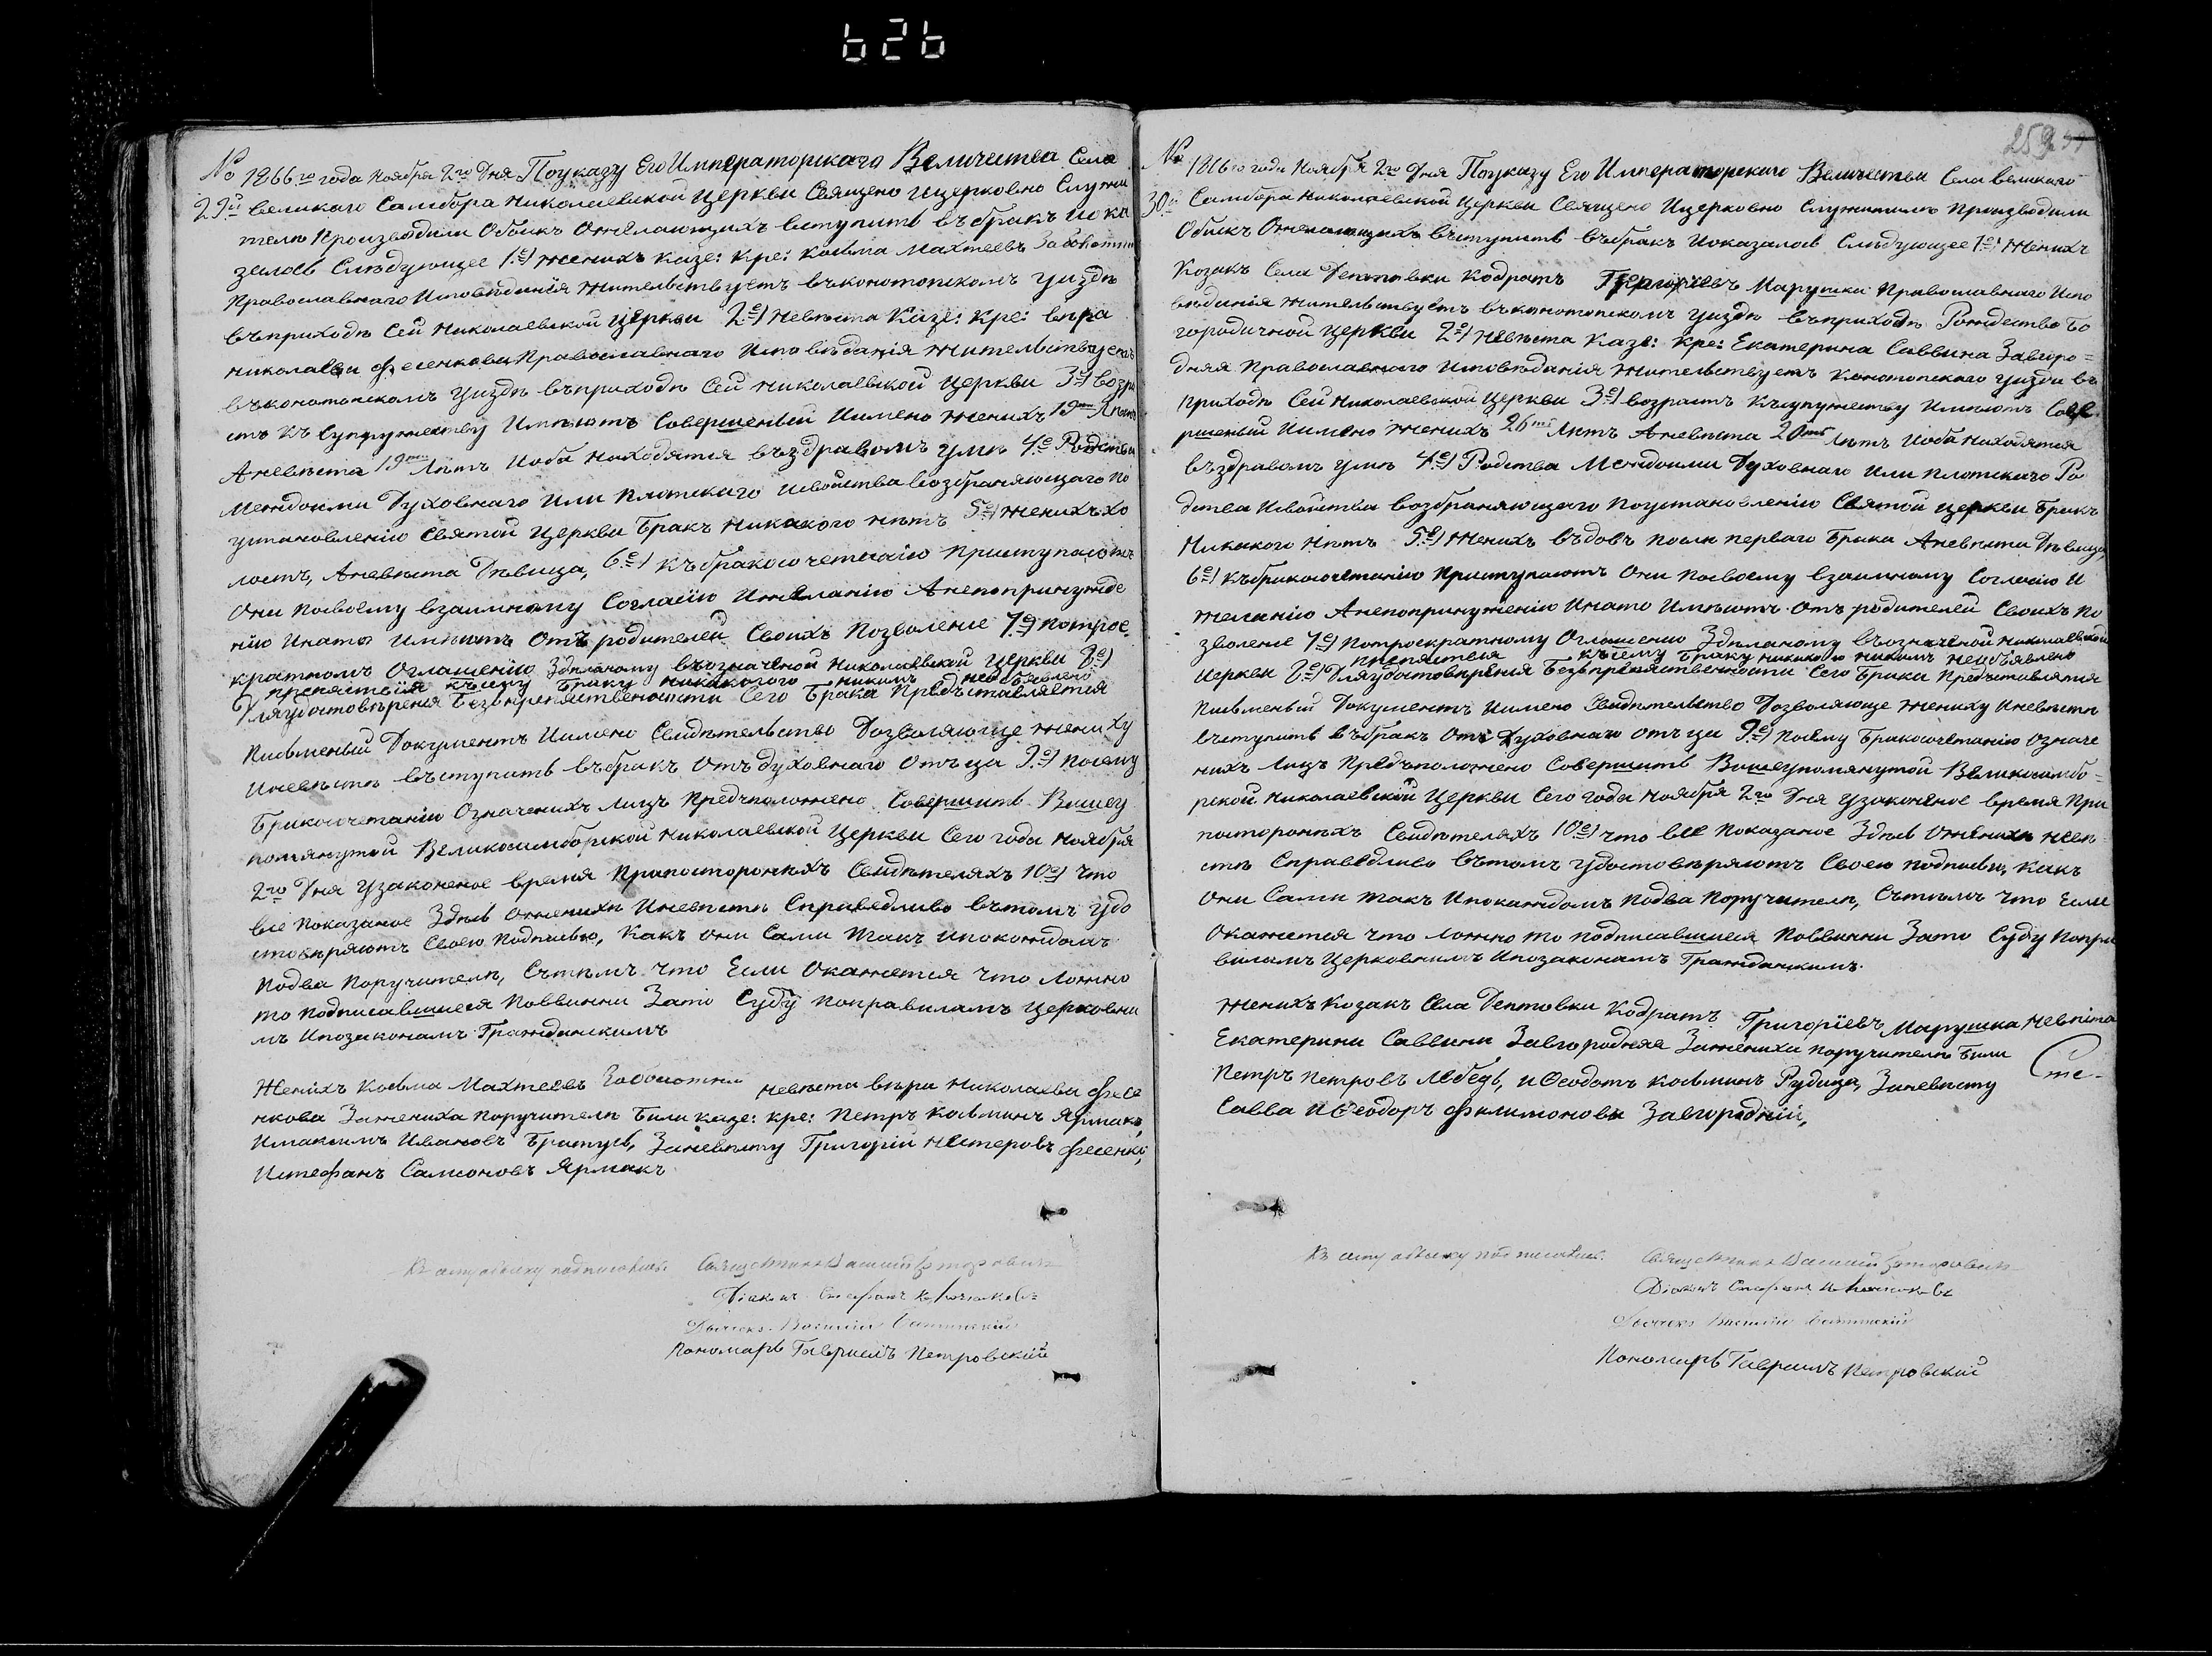 626
№ 1866го года Ноября 2го Дня Поуказу Его Императорскаго Величества Села
29й Великаго Самбора Николаевской Церкви Священо ицерковно Служи
тели Производили Обыскъ Ожелающихъ вступить въбракъ ипока
залось Слѣдующее 1е) Женихъ Казе: Кре: Косьма Махтеевъ
Православнаго Исповѣданія Жительствуетъ въконотопскомъ Уиздѣ
въприходѣ Сей Николаевской Церкви 2е) Невѣста Казе: Кре: вѣра
Николаева Фесенкова Православнаго Исповѣданія Жительствуетъ
въконотопскомъ Уиздѣ въприходѣ Сей Николаевской Церкви 3е) возра
стъ къ Супружеству Имѣютъ Совершеный Иимено Женихъ 19ть Лѣтъ
Аневѣста 19ть Лѣтъ Иоба Находятся въздравомъ умѣ 4е Родства
Меюдоими Духовнаго Или Плотскаго Исвойства возбраняющаго по
установленію Святой Церкви Бракъ Никакого нѣтъ 5е) Женихъ хо
лостъ, Аневѣста Дѣвица, 6е) къбракосочетанію Приступаютъ
Они Посвоему взаимному Согласію Ижеланію Анепопринужде
нію Инато Имѣютъ Отъ родителей Своихъ Позволение 7е) Потрое
кратномъ Оглашенію Здѣланому въозначеной Николаевской Церкви 8е)
препятствия късему Браку никакого никимъ необъявлено
Дляудостовѣрения Безпрепятственности Сего Брака Предъставляется
Письменый Документъ Иимено Свидѣтельство Дозволяюще Жениху
Иневѣстѣ въступить въбракъ Отъ духовнаго Отъца 9е) Посему
Бракосочетанію Означенихъ Лицъ Предъположено Совершить Вышеу
помянутой Великосамборской Николаевской Церкви Сего года Ноября
2го Дня Узаконеное время Припосторонихъ Свидѣтеляхъ 10е) Что
все Показаное Здѣсь Оженихѣ Иневѣстѣ Справедливо вътомъ Удо
стовѣряютъ Своею Подписью, Какъ они Сами Такъ Ипокаждомъ
Подва Поручителѣ, Сътѣмъ что Если Окажется что Ложно
то Подписавшиеся Повинни Зато Суду Поправиламъ Церковни
мъ Ипозаконамъ Гражданскимъ
Женихъ Косьма Махтеевъ Невѣста вѣра Николаева Фесе
нкова Зажениха Поручители Били казе: кре: Петръ Косьминъ Ярмакъ,
Имаксимъ Ивановъ Братусь, Заневѣсту Григорій Нестеровъ Фесенко,
Истефанъ Самсоновъ Ярмакъ
Къ сему обыску подписались: Священникъ Василій
Діаконъ Стефанъ
Дьячекъ Василій
Пономарь Гавриилъ Петровскій
259
№ 1866го года Ноября 2го Дня Поуказу Его Императорскаго Величества Села Великаго
30й Самбора Николаевской Церкви Священо Ицерковно Служители Производили
Обыскъ Ожелающихъ въступить въбракъ Ипоказалось Слѣдующее 1е) Женихъ
Козакъ Села Дептовки Кодратъ Григоріевъ Марушка Православнаго Испо
вѣданія Жительствуетъ въконотопскомъ Уиздѣ въприходѣ Рождество Бо
городичной Церкви 2е) Невѣста Казе: Кре: Екатерина Саввина Завгоро=
дняя Православнаго Исповѣданія Жительствуетъ Конотопскаго Уизда въ
приходѣ Сей Николаевской Церкви 3е) возрастъ Късупружеству Имѣютъ Сове
ршеный Иимено Женихъ 26ть Лѣтъ Аневѣста 20ть Лѣтъ Иоба Находятся
въздравомъ умѣ 4е) Родства Меюдоими Духовнаго Или Плотскаго Ро
дства Исвойства возбраняющаго Поустановленію Святой Церкви Бракъ
Никакого Нѣтъ 5е) Женихъ въдовъ послѣ перваго Брака Аневѣста Дѣвица,
6е) Къбракосочетанію Приступаютъ Они Посвоему взаимному Согласію И
желанію Анепопринуженію Инато Имѣютъ Отъ родителей Своихъ По
зволение 7е) Потроекратному Оглашению Здѣланому въозначеной Николаевской
препятствия къвсему Браку никакого никимъ необъявлено
Церкви 8е) Дляудостовѣрения Безпрепятственности Сего Брака Предъставлятся
Письменый Документъ Иимено Свидѣтельство Дозволяюще Жениху Иневѣстѣ
въступить въбракъ Отъ Духовнаго Отъца 9е) Посему Бракосочетанію Означе
нихъ Лицъ Предъположено Совершить Вышеупомянутой Великосамбо=
рской Николаевской Церкви Сего года Ноября 2го Дня Узаконеное время При
посторонихъ Свидѣтеляхъ 10е) что все Показаное Здѣсь Оженихѣ Невѣ
стѣ Справедливо вътомъ Удостовѣряютъ Своею Подписью, Какъ
Они Сами Такъ Ипокаждомъ Подва Поручителѣ, Съ тѣмъ что Если
Окажется что Ложно то Подписавшиеся Повинни Зато Суду Попра
виламъ Церковнимъ Ипозаконамъ Гражданскимъ.
Женихъ Козакъ Села Дептовки Кодратъ Григоріевъ Марушка Невѣста
Екатерина Саввина Завгородняя Зажениха Поручители Били
Петръ Петровъ Лебедь, иѲеодотъ Косьминъ Рудица, Заневѣсту Сте-
Савва иѲеодоръ Филимоновы Завгородній,
Къ сему обыску подписались: Священникъ Василій
Діаконъ Стефанъ
Дьячекъ Василій
Пономарь Гавриилъ Петровскій